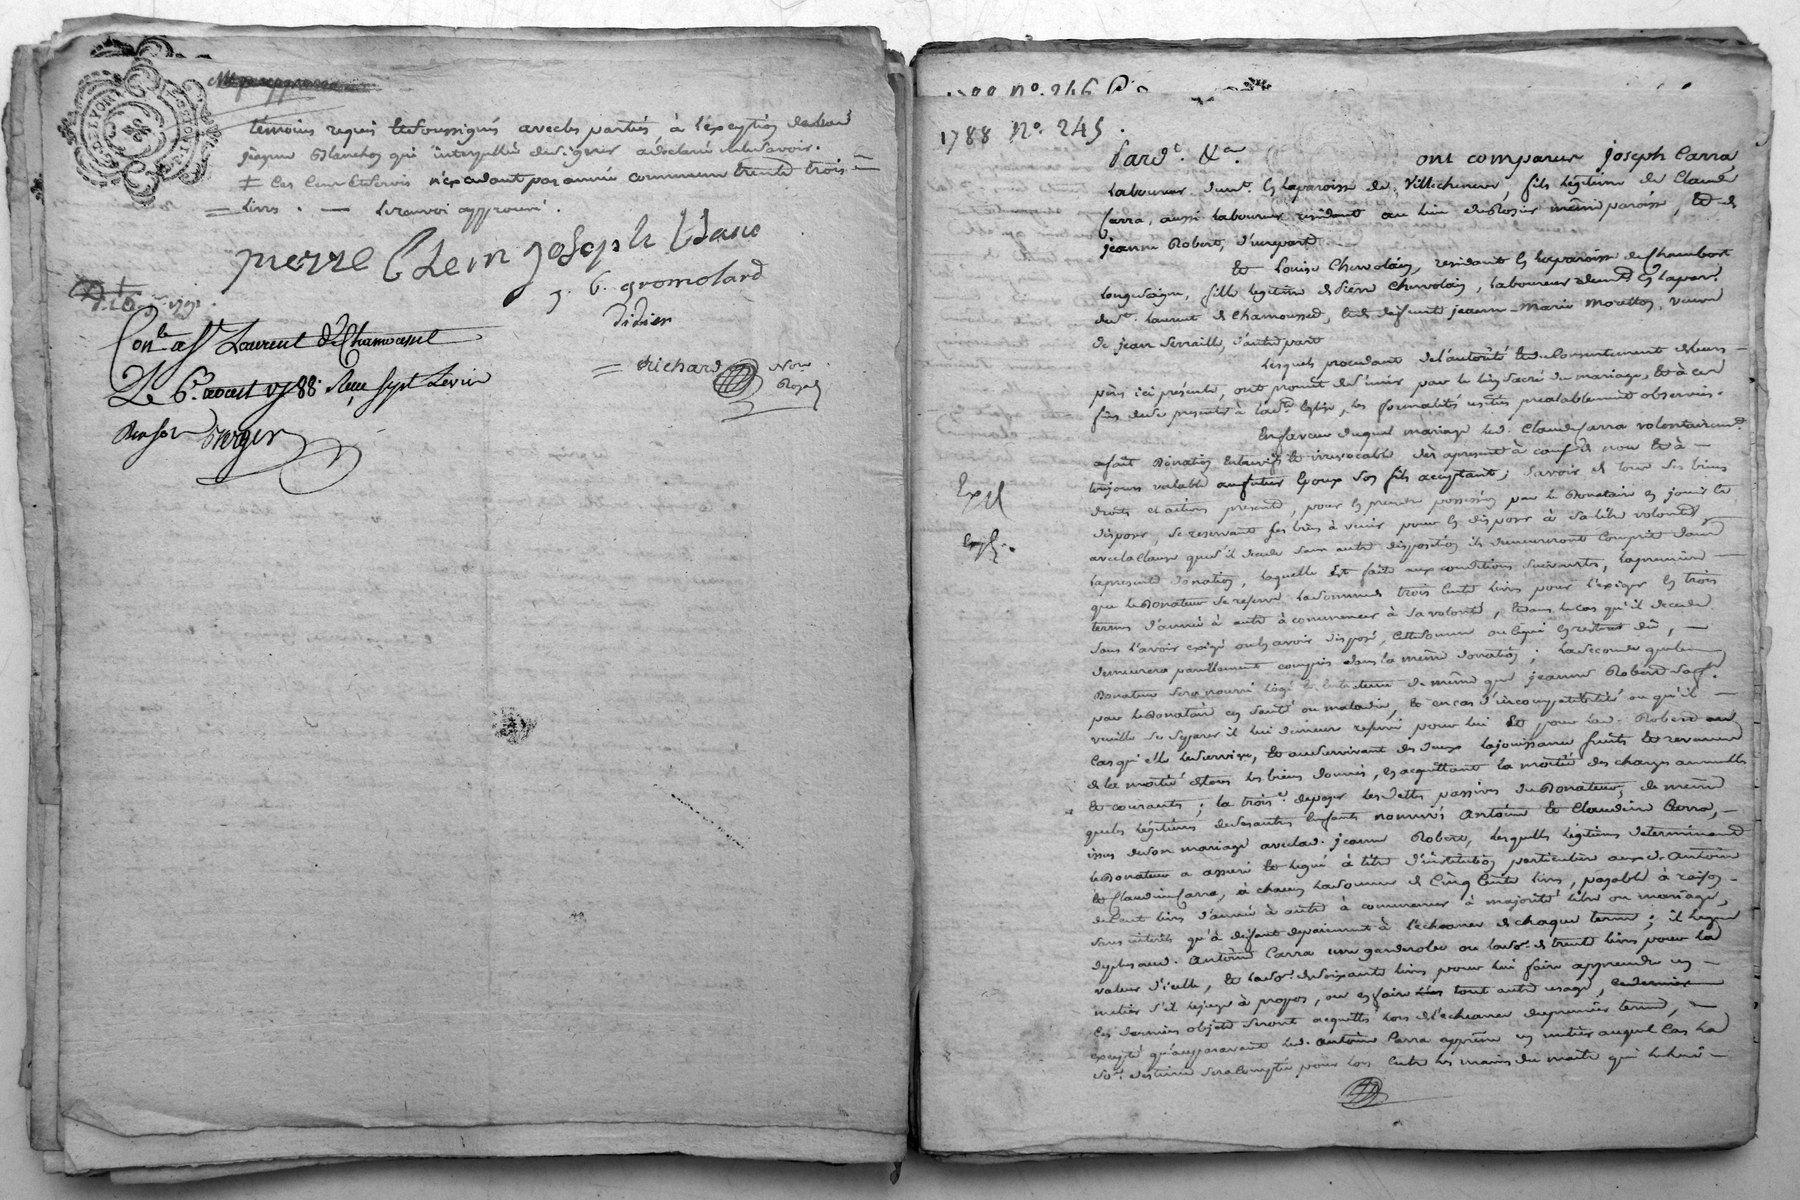 témoins requis et soussignés avec les parties, à l'exception de
jeanne Blanchon qui interpellée de signer a déclaré ne le savoir.
n'excedant pas année commune trente trois
livres. — le renvoi approuvé.
pierre joseph
j. C. gromolard
didier
Richard Nore
Royal
Conlé à St Laurent de Chamousset
Le 6e. aoust 1788. Reçu sept livres
Berger
1788 No. 246
1788 No. 245.
Pardt. &a. ont comparus joseph Carra
laboureur demt. en la paroisse de Villecheneve, fils légitime de Claude
Carra, aussi laboureur residant au lieu du Rosier même paroisse, et de
jeanne Robert, d'une part
Et Louise residant en la paroisse de Chambost
Longesaigne, fille legitime de pierre laboureur demt. en la par.
de St. Laurent de Chamousset, et de defunte jeanne-Marie Moretton, veuve
de jean d'autre part
Lesquels procedant de l'autorité et du consentement de leurs
pères ici présents, ont promis de s'unir par le lien sacré du mariage, et à ces
fins de se presenter à la Ste. Eglise, les formalités usitées prealablement observées.
En faveur duquel mariage led. Claude Carra volontairemt.
a fait Donation entrevifs et irrevocable dès apresent à cause de noces et à
toujours valable au futur Epoux son fils acceptant; savoir de tous ses biens
droits et actions presents, pour en prendre possession par le Donataire en jouir et
disposer, se reservant ses biens à venir pour en disposer à sa libre volonté
avec la clause que s'il decede sans autre disposition ils demeureront compris dans
la presente donation, laquelle est faite aux conditions suivantes, la premiere
que le Donateur se reserve la somme de trois cents livres pour l'exiger en trois
termes d'année à autre à commencer à sa volonté, et dans le cas qu'il decede
sans l'avoir exigé ou en avoir disposé, cette somme ou ce qui en restera dû,
demeurera pareillement compris dans la même donation; la seconde que le
Donateur sera nourri logé et entretenu de même que jeanne Robert sa fe.
par le Donataire en santé ou maladie, et en cas d'incompatibilité ou qu'il
veuille se separer il lui demeure reservé pour lui et pour lad. Robert au
cas qu'elle le survive, et au survivant des deux la jouissance fruits et revenus
de la moitié de tous les biens donnés, en acquittant la moitié des charges annuelles
et courantes; la troise. de payer les dettes passives du Donateur, de même
que les légitimes de ses autres enfants nommés Antoine et Claudine Carra,
issus de son mariage avec lad. jeanne Robert, lesquelles légitimes determinant
le Donateur a assuré et legué à titre d'institution particuliere auxd. Antoine
et Claudine Carra, à chacun la somme de Cinq Cents livres, payable à raison
de cent livres d'année à autre à commencer à majorité libre ou mariage,
sans interets qu'à defaut de paiement à l'echeance de chaque terme; il legue
de plus aud. Antoine Carra une garderobe ou la so. de trente livres pour la
valeur d'icelle, et la so. de soixante livres pour lui faire apprendre un
metier s'il le juge à propos, ou en faire tout autre usage,
ces derniers objets seront acquittés lors de l'echeance du premier terme,
excepté qu'auparavant led. Antoine Carra apprene un metier auquel cas la
so. destinée sera comptée pour lors entre les mains du maitre qui